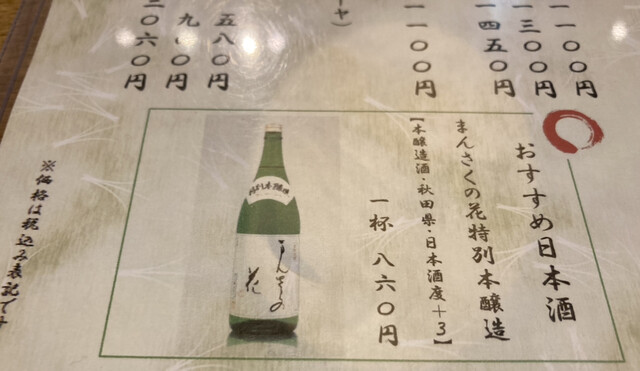 一一〇〇円
一三〇〇円
一四五〇円
一一〇〇円
ーヤ）
五八〇円
〇六〇円
おすすめ日本酒
まんさくの花特別本醸造
【本醸造酒・秋田県・日本酒度＋3】
一杯 八六〇円
特別本醸造
まんさくの
花
※価格は税込み表記です